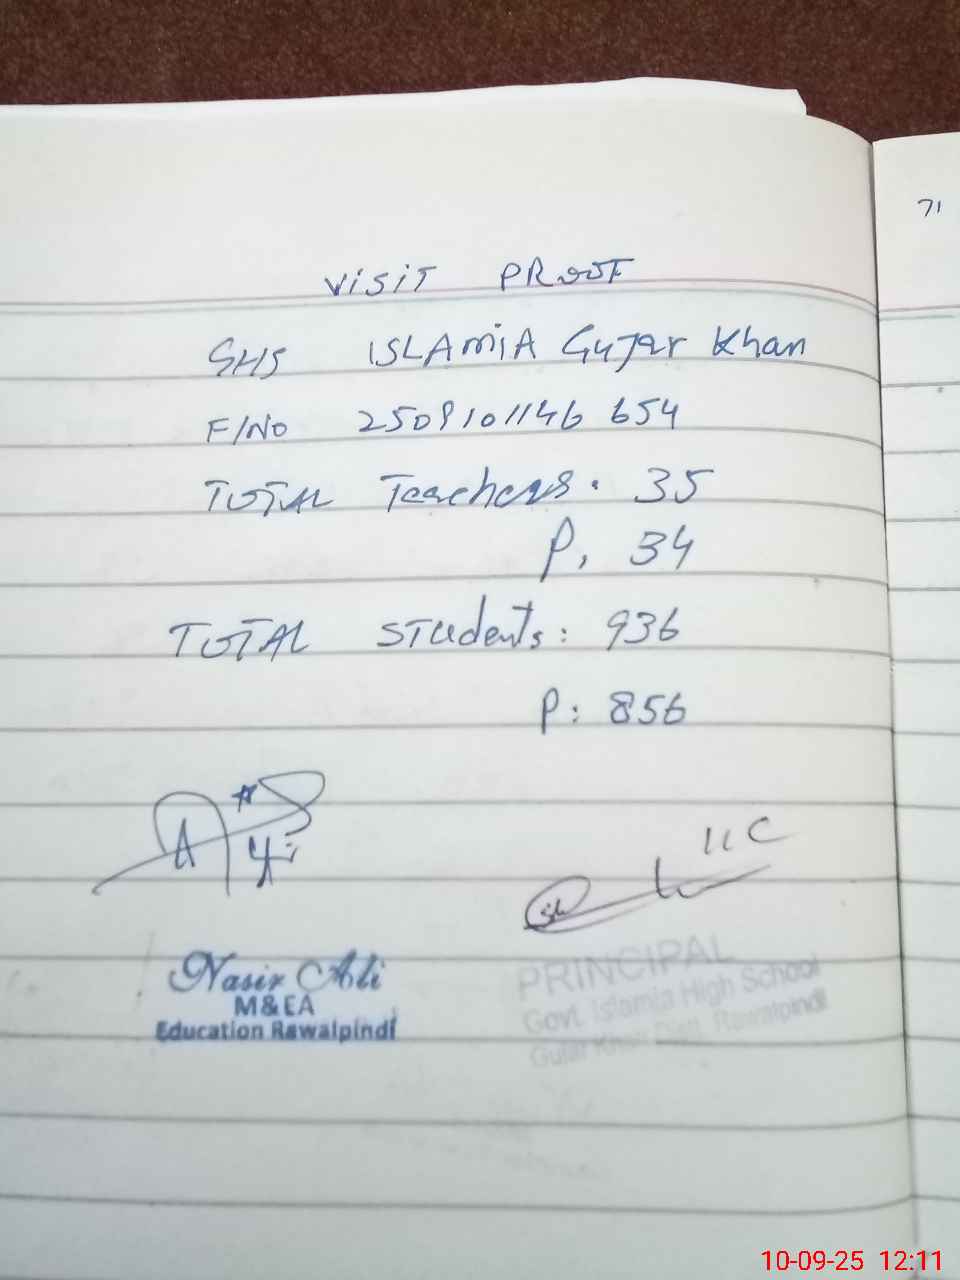 71
VISIT PROOF
GHS ISLAMIA Gujar Khan
F/NO 2509101146 654
TOTAL Teachers. 35
P. 34
TOTAL Students: 936
P: 856
Nasir Ali
M&EA
Education Rawalpindi
PRINCIPAL
Govt. Islamia High School
Gujar Khan Distt. Rawalpindi
10-09-25 12:11